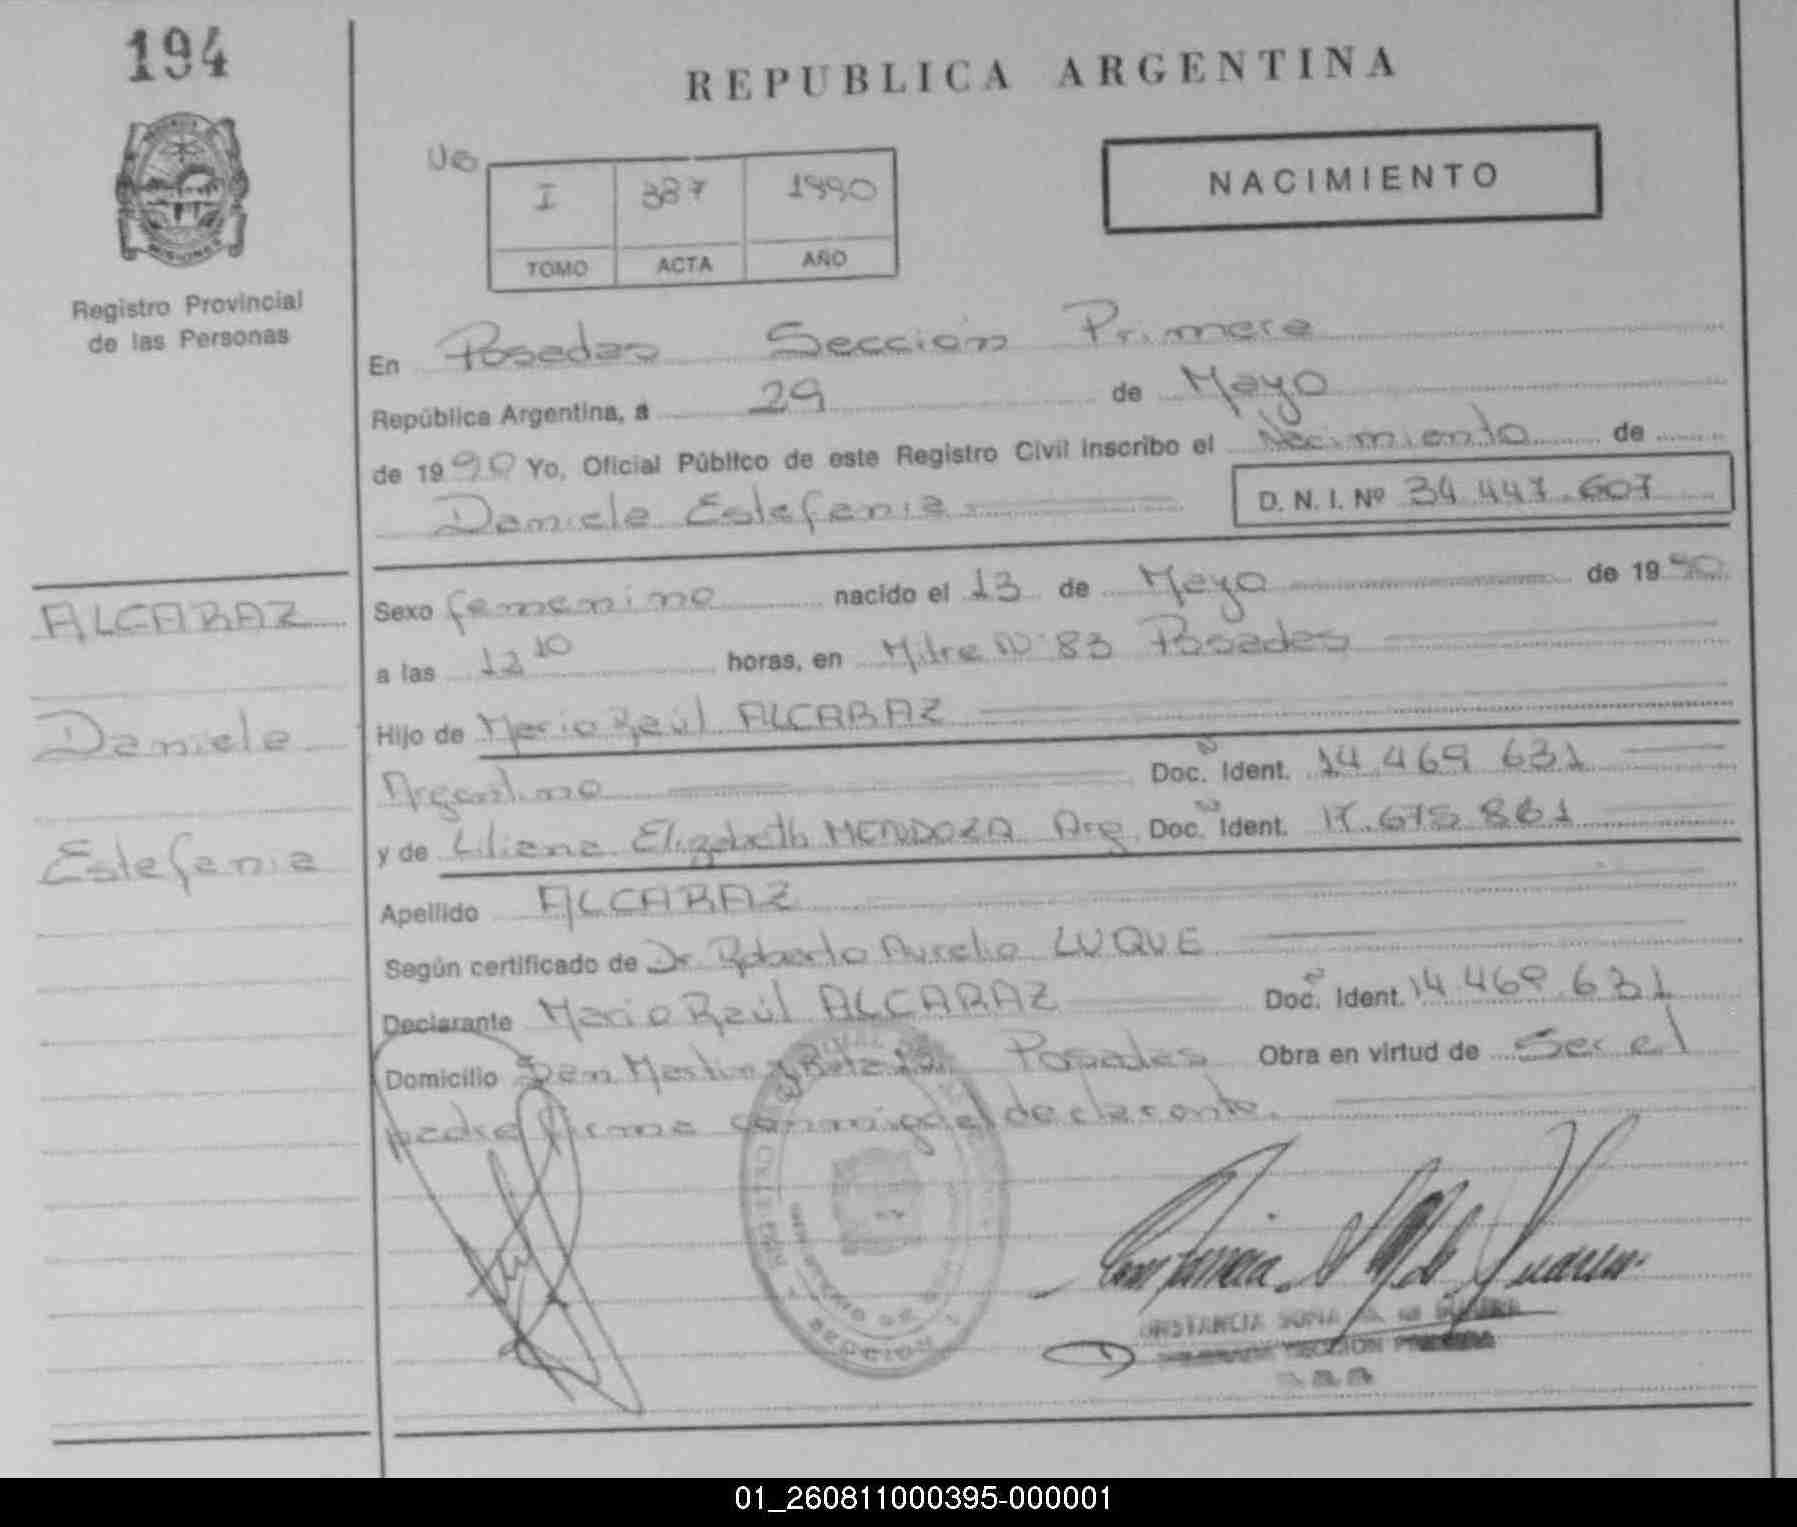 194
REPUBLICA ARGENTINA
NACIMIENTO
I 387 1990
TOMO ACTA AÑO
Registro Provincial
de las Personas
En Posadas Sección Primera
República Argentina, a 29 de Mayo
de 1990 Yo, Oficial Público de este Registro Civil inscribo el Nacimiento de
Daniela Estefania D. N. I. Nº 34.447.607
ALCARAZ
Daniela
Estefania
Sexo femenino nacido el 13 de Mayo de 1990
a las 12 10 horas, en Mitre Nº 83 Posadas
Hijo de Mario Raúl ALCARAZ
Argentino Doc. Ident. 14.469.631
y de Liliana Elizabeth MENDOZA Arg. Doc. Ident. 17.675.861
Apellido ALCARAZ
Según certificado de Dr. Roberto Aurelio LUQUE
Declarante Mario Raúl ALCARAZ Doc. Ident. 14.469.631
Domicilio San Martin y Posadas Obra en virtud de Ser el
padre firma conmigo el declarante.
SECCION 1
SECCION PRIMERA
01_260811000395-000001